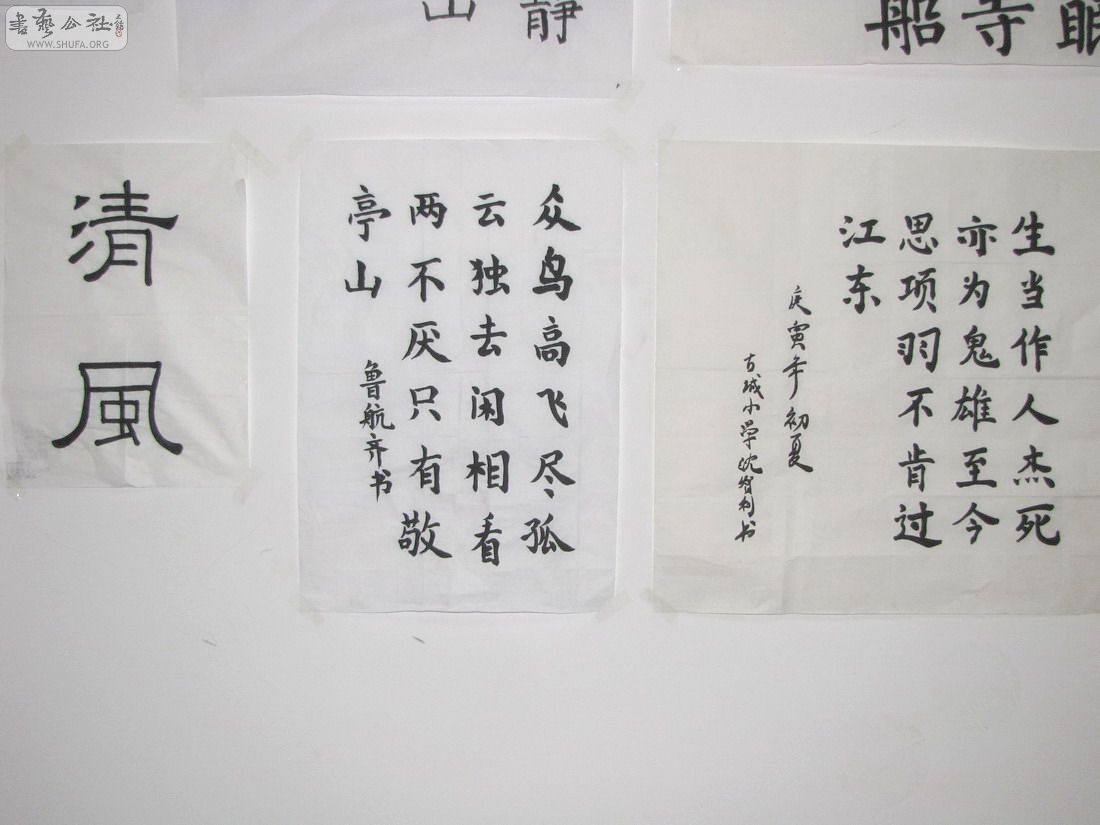 書藝公社
WWW.SHUFA.ORG
静
山
眠
寺
船
清風
众鸟高飞尽孤
云独去闲相看
两不厌只有敬
亭山
鲁航齐书
生当作人杰死
亦为鬼雄至今
思项羽不肯过
江东
庚寅年初夏
古城小学沈智利书